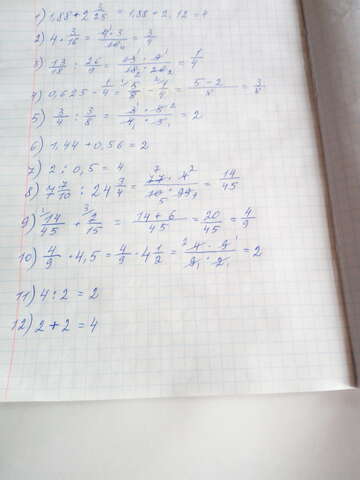 1) 1,88 + 2 3/25 = 1,88 + 2,12 = 4
2) 4 · 3/16 = 4·3/16 4 = 3/4
3) 13/18 : 26/9 = 13 1 · 9 1/18 2 · 26 2 = 1/4
4) 0,625 - 1/4 = 5/8 - 1/4 = 5-2/8 = 3/8
5) 3/4 : 3/8 = 3 · 8 2/4 1 · 3 1 = 2
6) 1,44 + 0,56 = 2
7) 2 : 0,5 = 4
8) 7 7/10 : 24 3/4 = 77 7 · 4 2/10 5 · 99 9 = 14/45
9) 14/45 + 2/15 = 14+6/45 = 20/45 = 4/9
10) 4/9 · 4,5 = 4/9 · 4 1/2 = 2 4 · 9 1/9 1 · 2 1 = 2
11) 4 : 2 = 2
12) 2 + 2 = 4